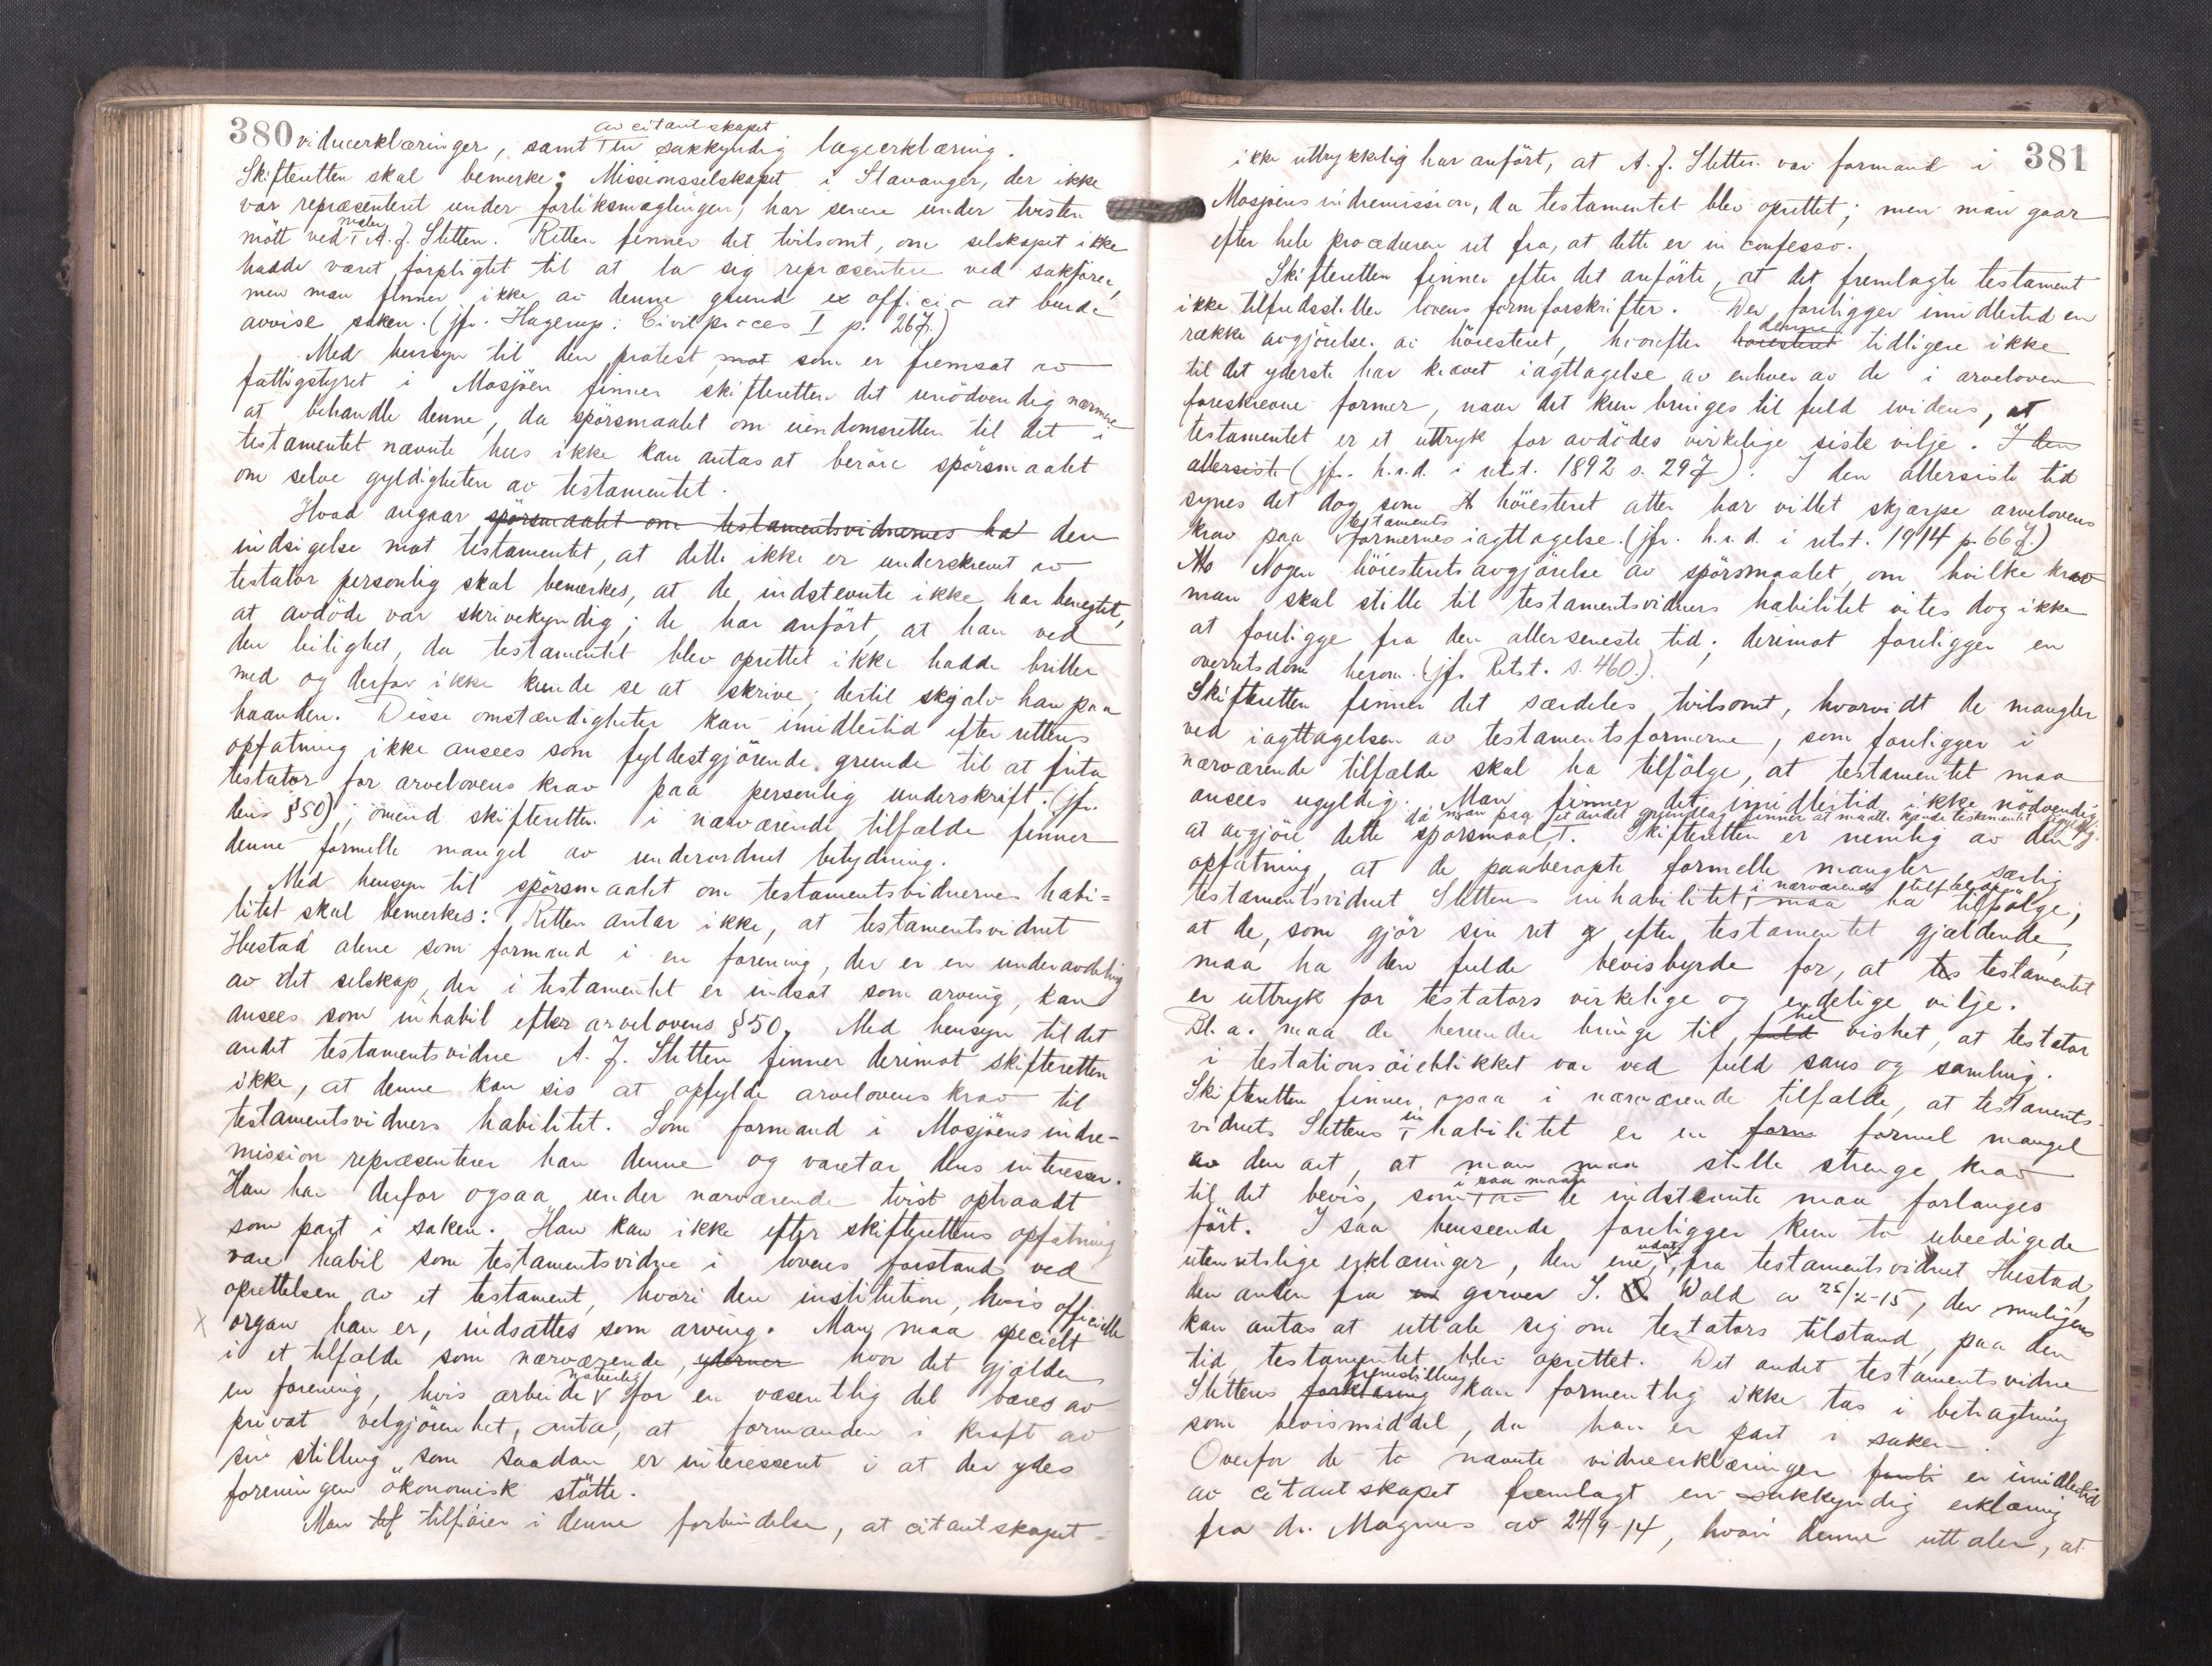 380
av citantskapet
vidneerklæringer, samt en sakkyndig lægeerklæring.
Skifteretten skal bemerke: Missionsselskapet i Stavanger, der ikke
var repræsentert under forliksmæglingen, har senere under tvisten
møtt ved maler A. J. Sletten. Retten finner det tvilsomt, om selskapet ikke
hadde været forpligtet til at la sig repræsentere ved sakfører,
men man finner ikke av denne grund ex officio at burde
avvise saken. (jfr. Hagerup: Civilproces I p. 267.)
Med hensyn til den protest, mot som er fremsat av
fattigstyret i Mosjøen finner skifteretten det unødvendig nærmere
at behandle denne, da spørsmaalet om eiendomsretten til det i
testamentet nævnte hus ikke kan antas at berøre spørsmaalet
om selve gyldigheten av testamentet.
Hvad angaar spørsmaalet om testamentsvidnernes ha den
indsigelse mot testamentet, at dette ikke er underskrevet av
testator personlig skal bemerkes, at de indstevnte ikke har benegtet,
at avdøde var skrivekyndig; de har anført, at han ved
den leilighet, da testamentet blev oprettet ikke hadde briller
med og derfor ikke kunde se at skrive; dertil skjalv han paa
haanden. Disse omstændigheter kan imidlertid efter rettens
opfatning ikke ansees som fyldestgjørende grunde til at frita
testator for arvelovens krav paa personlig underskrift. (jfr.
dens §50); omend skifteretten i nærværende tilfælde finner
denne formelle mangel av underordnet betydning.
Med hensyn til spørsmaalet om testamentsvidnernes habi=
litet skal bemerkes: Retten antar ikke, at testamentsvidnet
Hustad alene som formand i en forening, der er en underavdeling
av det selskap, der i testamentet er indsat som arving, kan
ansees som inhabil efter arvelovens §50. Med hensyn til det
andet testamentsvidne A. J. Sletten finner derimot skifteretten
ikke, at denne kan sis at opfylde arvelovens krav til
testamentsvidners habilitet. Som formand i Mosjøens indre-
mission repræsenterer han denne og varetar dens interesser.
Han har derfor ogsaa under nærværende tvist optraadt
som part i saken. Han kan ikke efter skifterettens opfatning
være habil som testamentsvidne i lovens forstand ved
oprettelsen av et testament, hvori den institution, hvis officielle
x organ han er, indsattes som arving. Man maa specielt
i et tilfælde som nærværende, yderner hvor det gjælder
en forening, hvis arbeide naturlig for en væsentlig del bæres av
privat velgjørenhet, anta, at formanden i kraft av
sin stilling som saadan er interessert i at der ydes
foreningen økonomisk støtte.
Man tilføier i denne forbindelse, at citantskapet
381
ikke uttrykkelig har anført, at A. J. Sletten var formand i
Mosjøens indremission, da testamentet blev oprettet; men man gaar
efter hele proceduren ut fra, at dette er in confesso.
Skifteretten finner efter det anførte, at det fremlagte testament
ikke tilfredsstiller lovens formforskrifter. Der foreligger imidlertid en
række avgjørelser av høiesteret, hvorefter høiesteret denne tidligere ikke
til det yderste har krævet iagttagelse av enhver av de i arveloven
foreskrevne former, naar det kun bringes til fuld evidens, at
testamentet er et uttryk for avdødes virkelige siste vilje. I den
allersiste (jfr. h.r.d. i rt.t. 1892 s. 297). I den allersiste tid
synes det dog som høiesteret atter har villet skjærpe arvelovens
krav paa testamentsformernes iagttagelse. (jfr. h.r.d. i rt.t. 1914 p. 667.)
Nogen høiesteretsavgjørelse av spørsmaalet, om hvilke krav
man skal stille til testamentsvidners habilitet vites dog ikke
at foreligge fra den allerseneste tid; derimot foreligger en
overretsdom herom. (jfr. Ret.t. s. 460.).
Skifteretten finner det særdeles tvilsomt, hvorvidt de mangler
ved iagttagelsen av testamentsformerne, som foreligger i
nærværende tilfælde skal ha tilfølge, at testamentet maa
ansees ugyldig. Man finner det imidlertid ikke nødvendig
da man paa et andet grundlag finner at maatte kjende testamentet ugyldig.
at avgjøre dette spørsmaal. Skifteretten er nemlig av den
opfatning, at de paaberopte formelle mangler særlig
testamentsvidnet Slettens inhabilitet, i nærværende tilfælde maa ha tilfølge,
at de, som gjør sin ret efter testamentet gjældende,
maa ha den fulde bevisbyrde for, at testamentet
er uttryk for testators virkelige og endelige vilje.
Bl.a. maa de herunder bringe til fuld hel vished, at testator
i testationsøieblikket var ved fuld sans og samling.
Skifteretten finner ogsaa i nærværende tilfælde, at testaments-
vidnets Slettens inhabilitet er en form formel mangel
av den art, at man maa stille strenge krav
til det bevis, som i saa maate de indstevnte maa forlanges
ført. I saa henseende foreligger kun to ubeedigede
utenretslige erklæringer, den ene udat. fra testamentsvidnet Hustad,
den anden fra garver J. Wold av 25/2-15, der muligens
kan antas at uttale sig om testators tilstand, paa den
tid testamentet blev oprettet. Det andet testamentsvidne
Slettens forklaring fremstilling kan formentlig ikke tas i betragtning
som bevismiddel, da han er part i saken.
Overfor de to nævnte vidneerklæringer er imidlertid
av citantskapet fremlagt en sakkyndig erklæring
fra dr. Magnus av 24/9-14, hvori denne uttaler, at